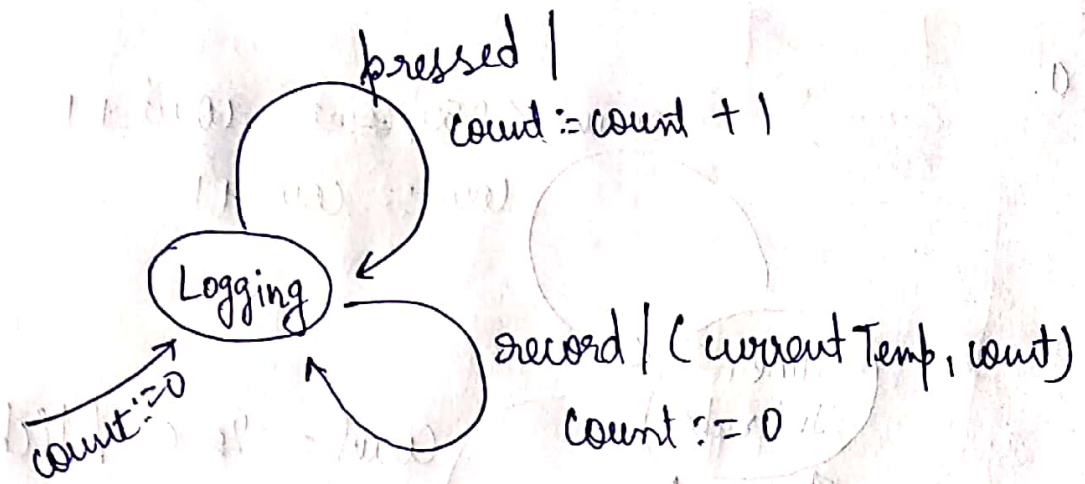 pressed |
count := count + 1
Logging
record | (current Temp, count)
count := 0
count := 0